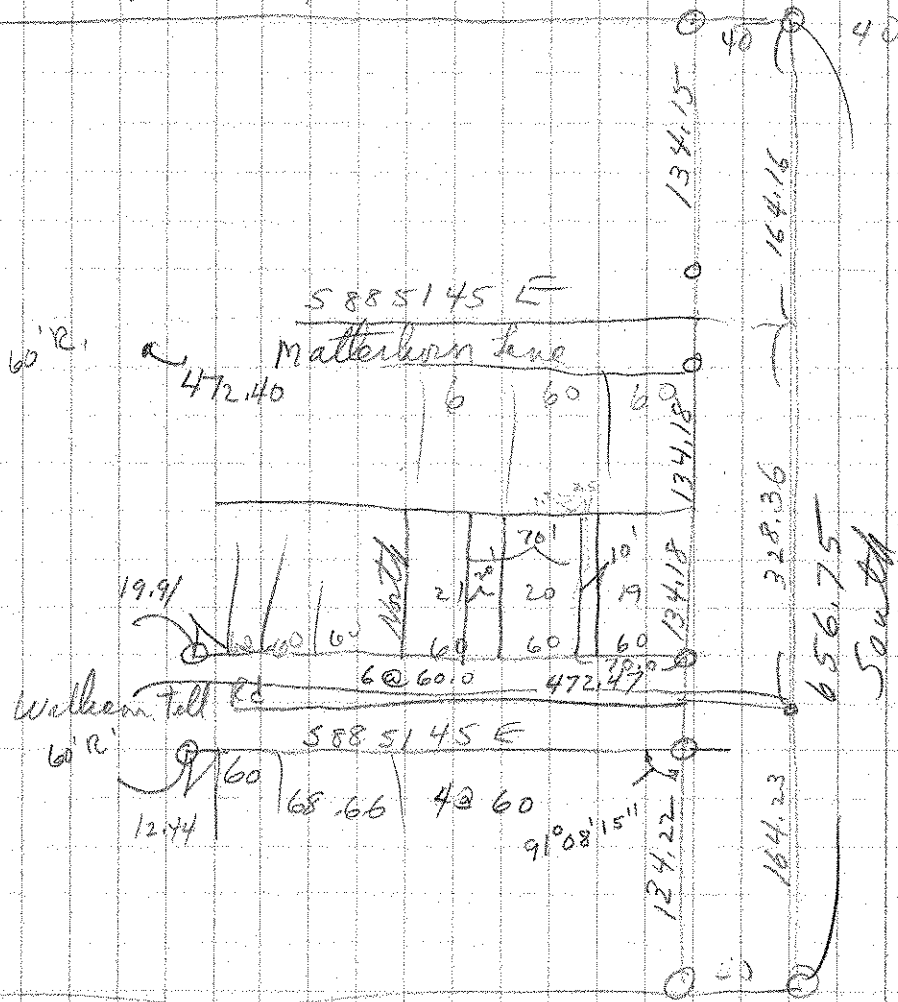 40
40
134.15
164.16
S 88 51 45 E
60' R.
Matterhorn Lane
472.40
6 60 60
134.18
328.36
656.75
South
70'
10'
North
21 20 19
134.18
19.91
60 60
60 60 60
6 @ 60.0
472.47
William Tell Rd
60' R'
S 88 51 45 E
60
68.66
4 @ 60
12.44
91°08'15"
134.22
164.23